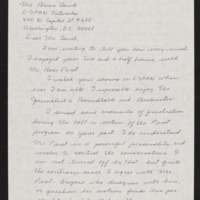 Mr. Brian Lamb
C-SPAN Networks
400 N. Capitol St. #650
Washington, D.C. 20001
Dear Mr. Lamb,
I am writing to tell you how very much
I enjoyed your two and a half hours with
Mr. Ross Perot.
I watch your shows on C-SPAN when
ever I am able. I especially enjoy the
Journalist's Roundtable and Booknotes.
I sensed some moments of frustration
during the call in section of the Perot
program on your part. I do understand
Mr. Perot is a powerful personality, and
tends to control the conversations. I
am not turned off by that, but quite
the contrary, since I agree with Mr.
Perot. Anyone who disagrees with him,
or questions his motives finds